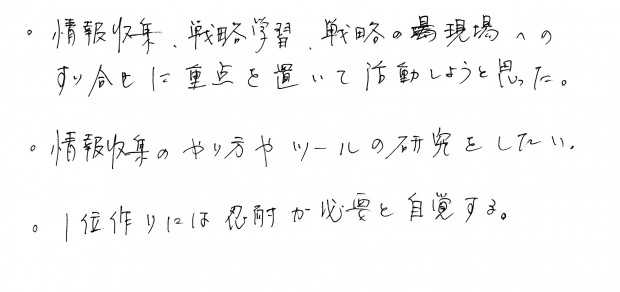 。情報収集、戦略学習、戦略の現場への
すり合せに重点を置いて活動しようと思った。
。情報収集のやり方やツールの研究をしたい。
。1位作りには忍耐が必要と自覚する。